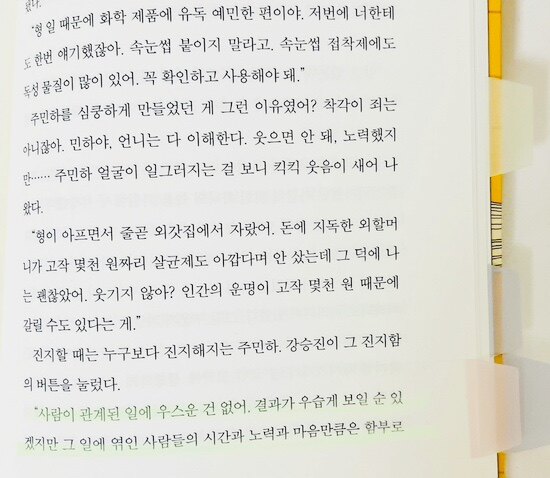 왔다.
“형 일 때문에 화학 제품에 유독 예민한 편이야. 저번에 너한테
도 한번 얘기했잖아. 속눈썹 붙이지 말라고. 속눈썹 접착제에도
독성 물질이 많이 있어. 꼭 확인하고 사용해야 돼.”
주민하를 심쿵하게 만들었던 게 그런 이유였어? 착각이 죄는
아니잖아. 민하야, 언니는 다 이해한다. 웃으면 안 돼, 노력했지
만…… 주민하 얼굴이 일그러지는 걸 보니 킥킥 웃음이 새어 나
왔다.
“형이 아프면서 줄곧 외갓집에서 자랐어. 돈에 지독한 외할머
니가 고작 몇천 원짜리 살균제도 아깝다며 안 샀는데 그 덕에 나
는 괜찮았어. 웃기지 않아? 인간의 운명이 고작 몇천 원 때문에
갈릴 수도 있다는 게.”
진지할 때는 누구보다 진지해지는 주민하. 강승진이 그 진지함
의 버튼을 눌렀다.
“사람이 관계된 일에 우스운 건 없어. 결과가 우습게 보일 순 있
겠지만 그 일에 엮인 사람들의 시간과 노력과 마음만큼은 함부로